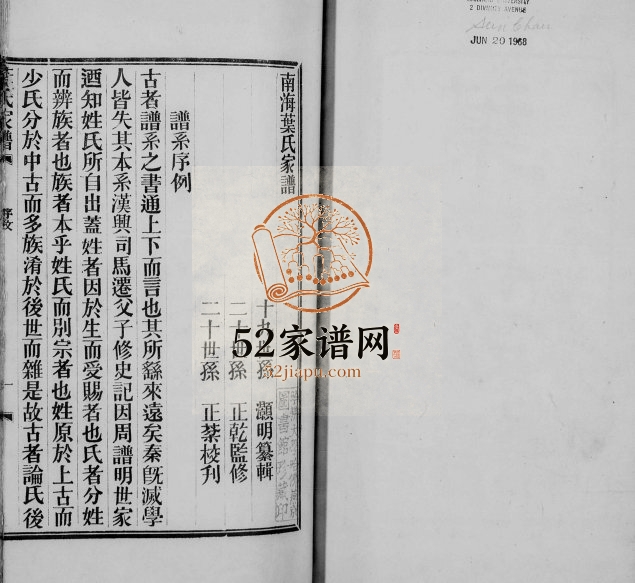 2 DIVINITY AVENUE
JUN 20 1968
南海葉氏家譜
十九世孫 灝明纂輯
二十世孫 正乾監修
二十世孫 正棻校刊
譜系序例
古者譜系之書通上下而言也其所繇來遠矣秦旣滅學
人皆失其本系漢興司馬遷父子修史記因周譜明世家
迺知姓氏所自出蓋姓者因於生而受賜者也氏者分姓
而辨族者也族者本乎姓氏而別宗者也姓原於上古而
少氏分於中古而多族淆於後世而雜是故古者論氏後
氏家譜
序文
一
52家谱网
52jiapu.com